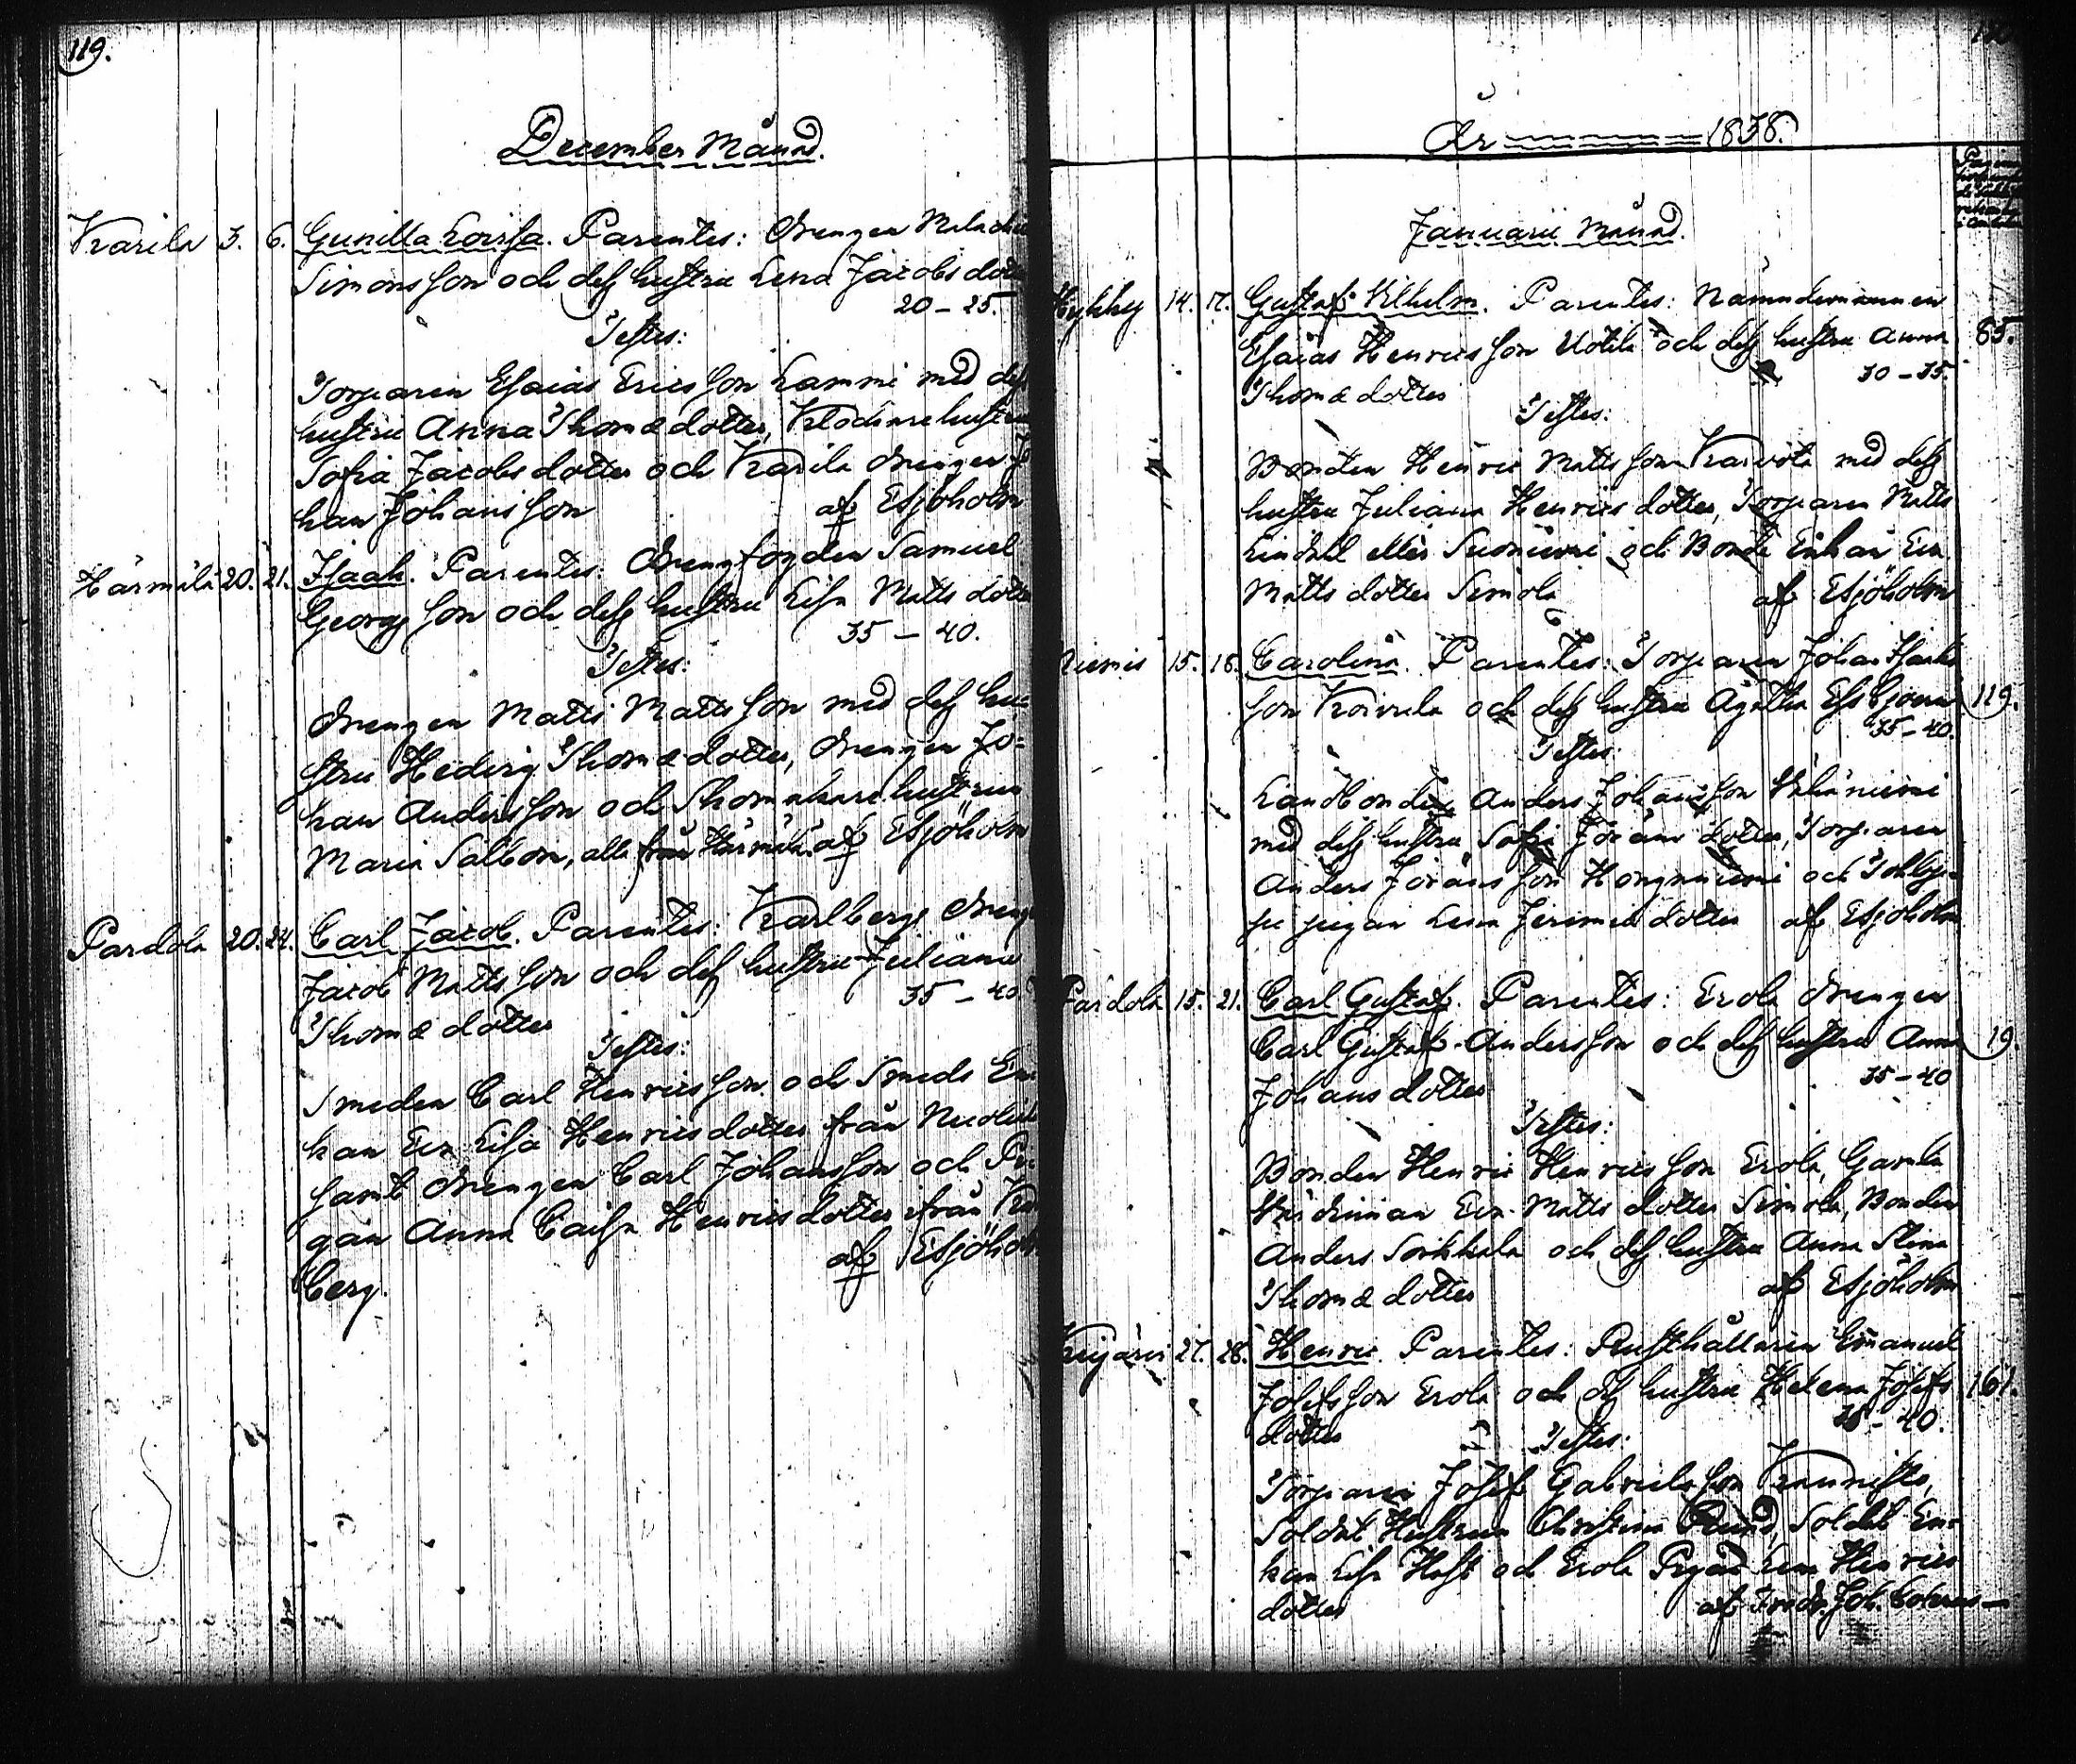 119.
December Månad.
Karila 3. 6. Gunilla Lovisa. Parentes: Drengen Malachi
Simonsson och dess hustru Lena Jacobs dotter
20 - 25.
Testes:
Torparen Esaias Ericsson Lammi med dess
hustru Anna Thomædotter, Klockare hustrun
Sofia Jacobs dotter och Karila drengen Jo
han Johansson af Esjöholm
Härmälä 20. 21. Isaak. Parentes: Drengfogden Samuel
Georgsson och dess hustru Lisa Matts dotter
35 - 40.
Testes:
Drengen Matts Mattsson med dess hu-
stru Hedvig Thomædotter, drengen Jo=
han Andersson och Skomakare hustrun
Maria Salbom, alla från Härmälä. af Esjöholm
Pardola 20. 24. Carl Jacob. Parentes: Karlbergs dreng
Jacob Mattsson och dess hustru Juliana
35 - 40
Thomædotter
Testes:
Smeden Carl Henricsson och Smeds En-
kan Eva Lisa Henricsdotter från
samt drengen Carl Johansson och Pi-
gan Anna Caisa Henricsdotter från Karl
berg. af Esjöholm
År 1838.
Januarii Månad.
14. 17. Gustaf Vilhelm. Parentes: Nämndemannen
Esaias Henricsson Uotila och dess hustru Anna 85.
30 - 35.
Thomædotter
Testes:
Bonden Henric Mattsson med dess
hustru Juliana Henricsdotter, Torparen Matts
Lindell eller och Bonde Enkan Eva
Matts dotter Simola af Esjöholm
Niemis 15. 18. Carolina. Parentes: Torparen Johan Isaks
son Koivula och dess hustru Agatha Esbjörn 119.
35 - 40.
Testes:
Landbonden Anders Johansson
med dess hustru Sofia Jöransdotter, Torparen
Anders Jöransson Honganiemi och
pigan Lena Jeremiædotter af Esjöholm
Pardola 15. 21. Carl Gustaf. Parentes: Erola drengen
Carl Gustaf Andersson och dess hustru Anna 19.
35 - 40
Johansdotter
Testes:
Bonden Henric Henricsson Erola, Gamla
Värdinnan Eva Matts dotter Simola, Bonden
Anders Sorkkala och dess hustru Anna Stina
Thomædotter af Esjöholm
27. 28. Henric. Parentes: Rusthållaren Emanuel
Josefsson Erola och dess hustru Helena Josefs 161.
dotter 35 - 40.
Testes:
Torparen Josef Gabrielsson Kaunisto,
Soldat Hustrun Christina Rund, Soldat En-
kan Lisa Haft och Erola Pigan Lena Henrics
dotter af Fredr. Joh.